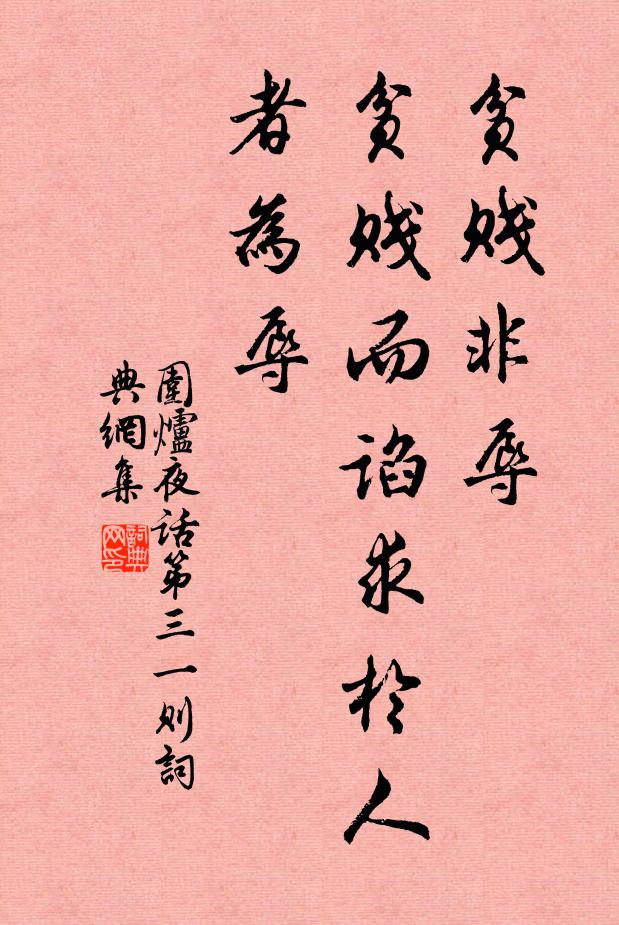 貧賤非辱
貧賤而諂求於人
者為辱
圍爐夜話第三一則詞
典網集
詞典
网印